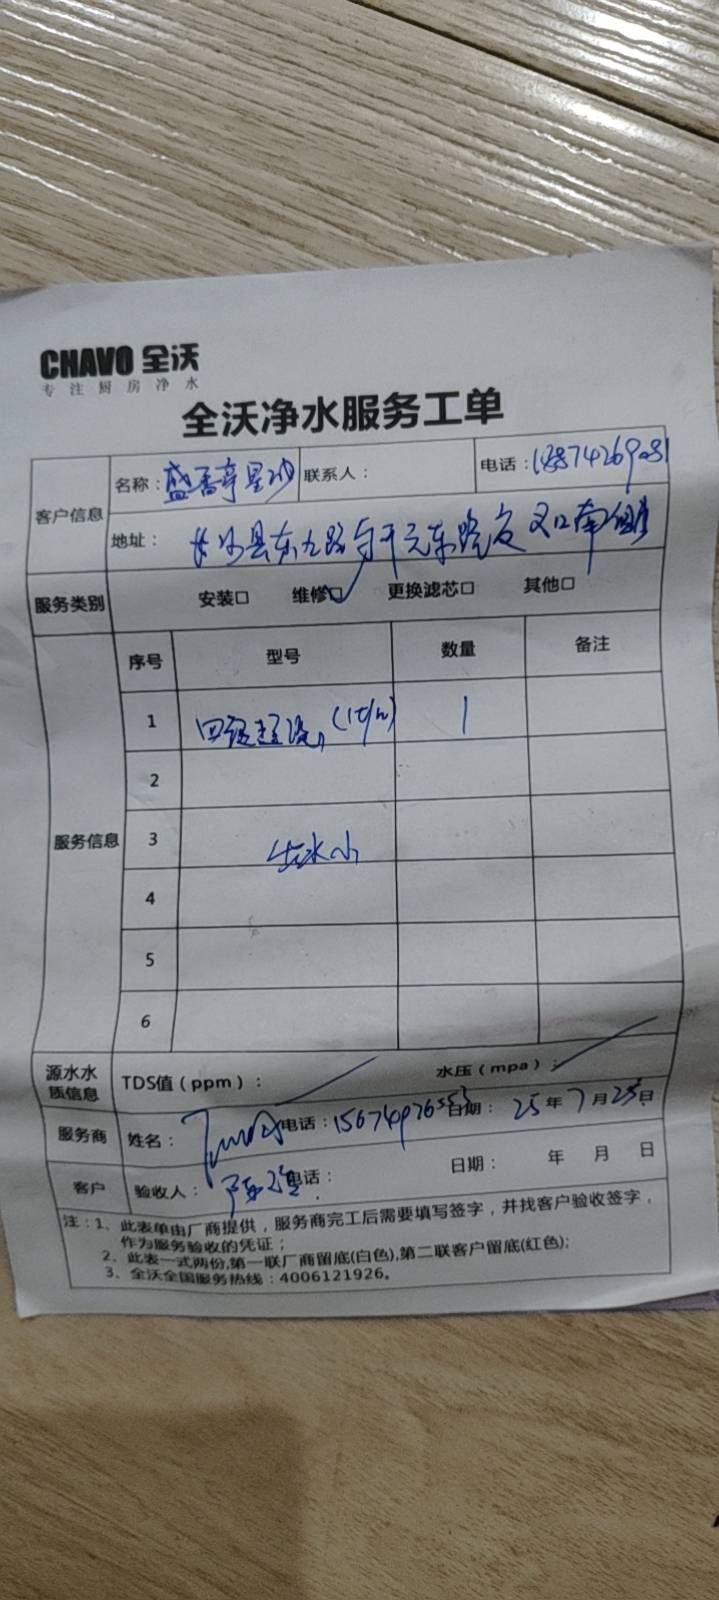 CHAVO 全沃
专注厨房净水
全沃净水服务工单
客户信息 名称：盛香亭星沙 联系人： 电话：
地址：长沙县东九路与开元东路交叉口南侧
服务类别 安装□ 维修☑ 更换滤芯□ 其他□
服务信息 序号 型号 数量 备注
1 四级超滤 (1t/h) 1
2
3 出水小
4
5
6
源水水质信息 TDS值（ppm）： 水压（mpa）：
服务商 姓名： 电话：15674976553 日期：25年7月25日
客户 验收人： 电话： 日期： 年 月 日
注：1、此表单由厂商提供，服务商完工后需要填写签字，并找客户验收签字，
作为服务验收的凭证；
2、此表一式两份,第一联厂商留底(白色),第二联客户留底(红色);
3、全沃全国服务热线：4006121926。